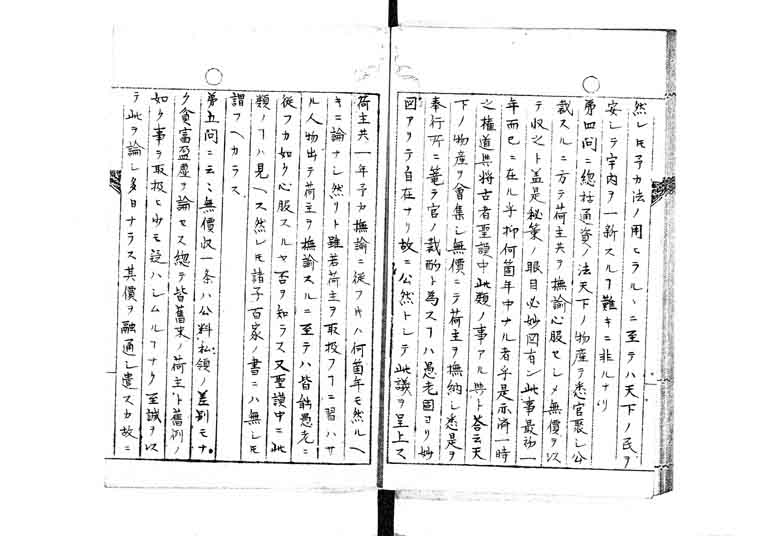 然レモ子カ法ノ用ヒラルヽニ至テハ天下ノ民ヲ
安シテ宇内ヲ一新スルヿ難キニ非ルナリ
第四問ニ総括通資ノ法天下ノ物産ヲ悉官聚シ公
裁スルニ方テ荷主共ヲ撫諭心服セシメ無價ヲ以
テ収之ト盖是秘策ノ眼目必妙図有ン此事最初一
年而已ニ在ル乎抑何箇年中ナル者乎是亦済一時
之権道與将古者聖謨中此類ノ事アル與ト答云天
下ノ物産ヲ會集シ無價ニテ荷主ヲ撫納シ悉是ヲ
奉行所ニ篭ラ官ノ裁酌ト為スヿハ愚老固ヨリ妙
図アリテ自在ナリ故ニ公然トシテ此議ヲ呈上ス
荷主共一年子カ撫諭ニ従フ片ハ何箇年モ然ルヘ
キニ論ナシ然リト雖若荷主ヲ取扱フヿニ習ハサ
ル人物出テ荷主ヲ撫諭スルニ至テハ皆能愚老ニ
従フカ如ク心服スルヤ否ヲ知ラス又聖謨中ニ此
類ノヿハ見ヘス然レモ諸子百家ノ書ニハ無シモ
謂フヘカラス
第五問ニ云ミ無價収一条ハ公料私領ノ差別モナ
ク貧富盈虚ヲ論セス総テ皆舊来ノ荷主ト舊例ノ
如ク事ヲ取扱ヒ少モ違ハシムルヿナク至誠ヲ以
テ此ヲ論シ多日ナラス其價ヲ融通シ遣スカ故ニ